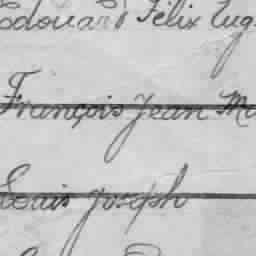 Edouard Félix Eug
François Jean Ma
Louis Joseph